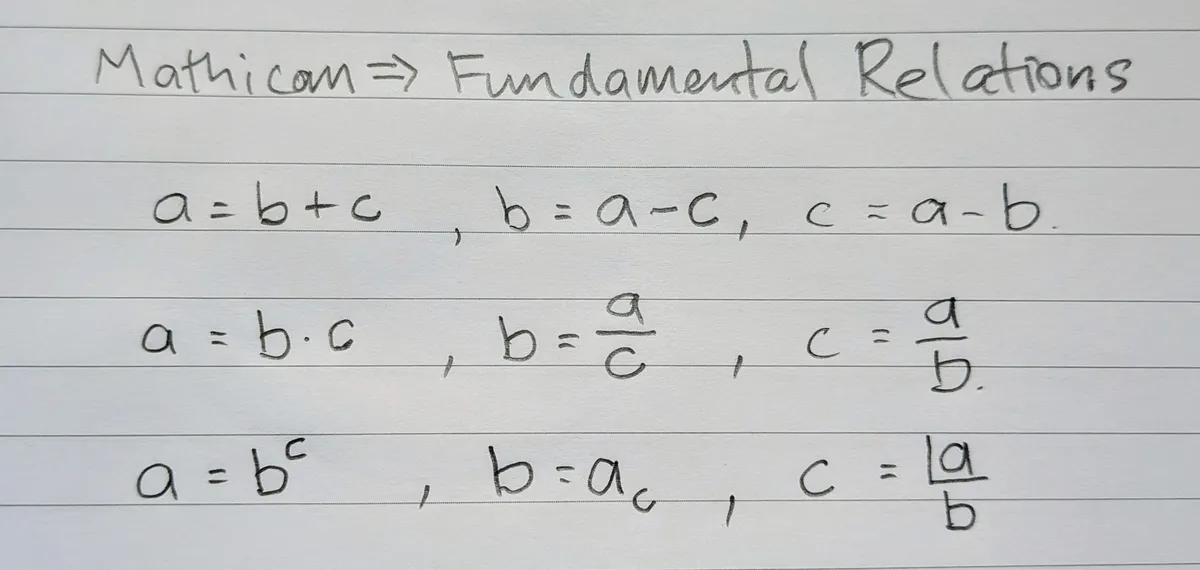 Mathicam ⇒ Fundamental Relations
a = b + c , b = a - c, c = a - b.
a = b · c , b = \frac{a}{c} , c = \frac{a}{b}.
a = b^c , b = a_c , c = \frac{|a}{b}